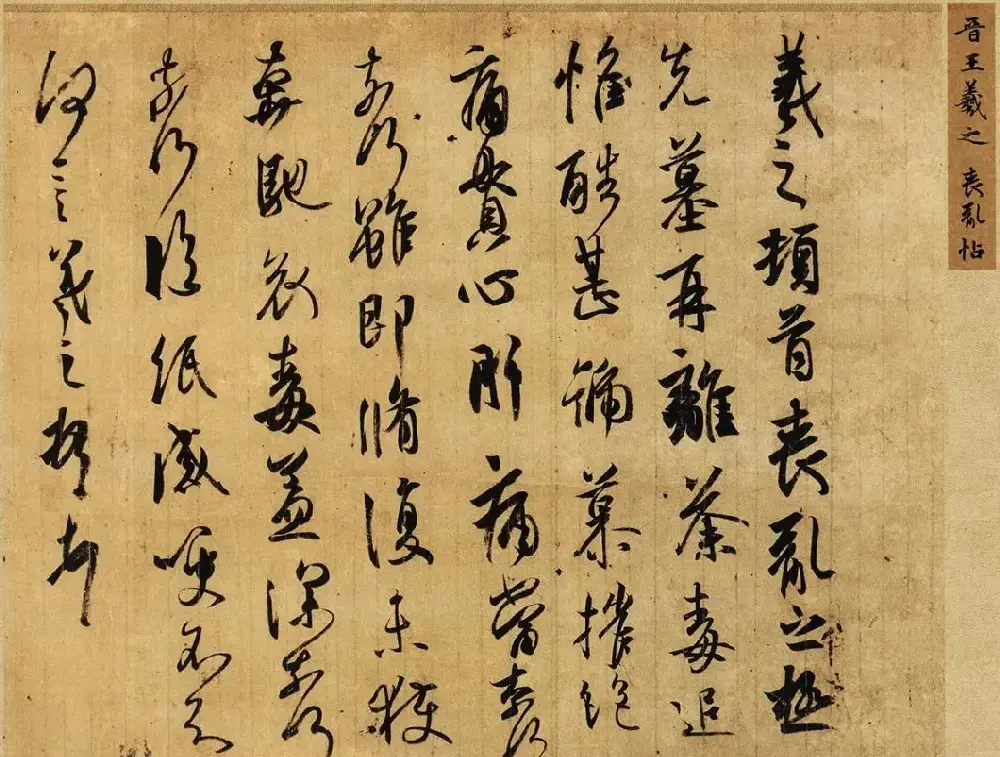 晉王羲之 喪亂帖
羲之頓首喪亂之極
先墓再離荼毒追
惟酷甚號慕摧絕
痛貫心肝痛當奈何
奈何雖即脩復未獲
奔馳哀毒益深奈何
奈何臨紙感哽不知
何言羲之頓首頓首